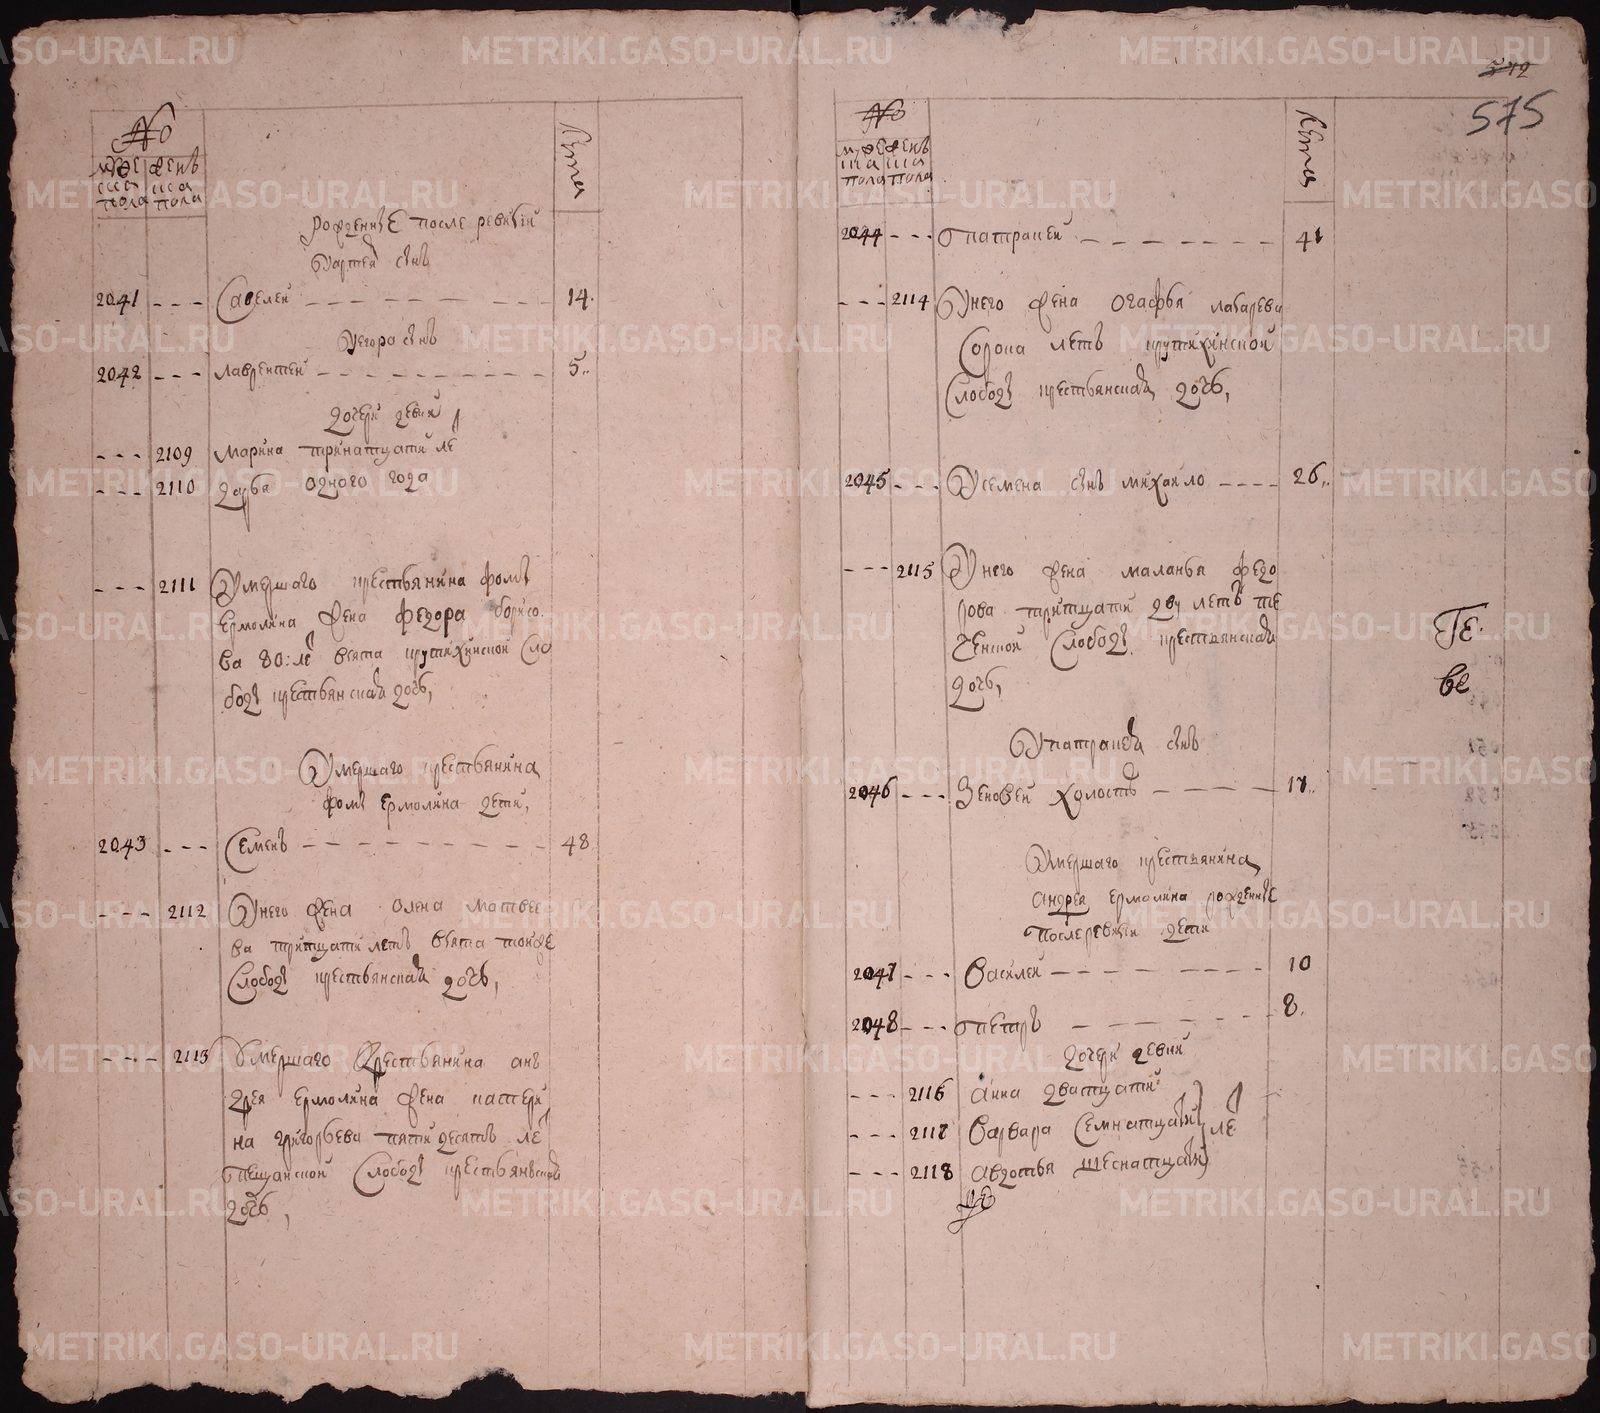 №
мужеска пола
женска пола
Лета
Рожденные после ревизии
У Артемья сынъ
2041 - - - Савелей - - - 14.
У Егора сынъ
2042 - - - Лаврентей - - - 5..
дочери девки
- - - 2109 Марина тринатцати ле
- - - 2110 дарья одного года
- - - 2111 Умершаго крестьянина фомы
Ермолина жена федора борисо
ва 80: ле взята крутихинской сло
боды крестьянская дочь,
Умершаго крестьянина
фомы ермолина дети,
2043 - - - Семенъ - - - 48
- - - 2112 У него жена олена матвее
ва тритцати летъ взята тоиже
Слободы крестьянская дочь,
- - - 2113 Умершаго Крестьянина ан
дрея ермолина жена катери
на григорьева пятидесятъ ле
пещанской Слободы крестьянская
дочь,
572
575
№
мужеска пола
женска пола
Лета
2044 - - - Патракей - - - 41
- - - 2114 У него жена огафья лазарева
Сорока летъ крутихинской
Слободы крестьянская дочь,
2045 - - - У семена сынъ михаило - - - 26..
- - - 2115 У него жена маланья федо
рова тритцати дву летъ те
ченской Слободы крестьянская
дочь,
Те.
ве
У патракея сынъ
2046 - - - Зеновей холостъ - - - 17..
Умершаго крестьянина
андрея ермолина рожденные
после ревизии дети
2047 - - - Василей - - - 10
2048 - - - Петръ - - - 8.
дочери девки
- - - 2116 анна дватцати
- - - 2117 Варвара Семнатцати ле
- - - 2118 авдотья шеснатцати